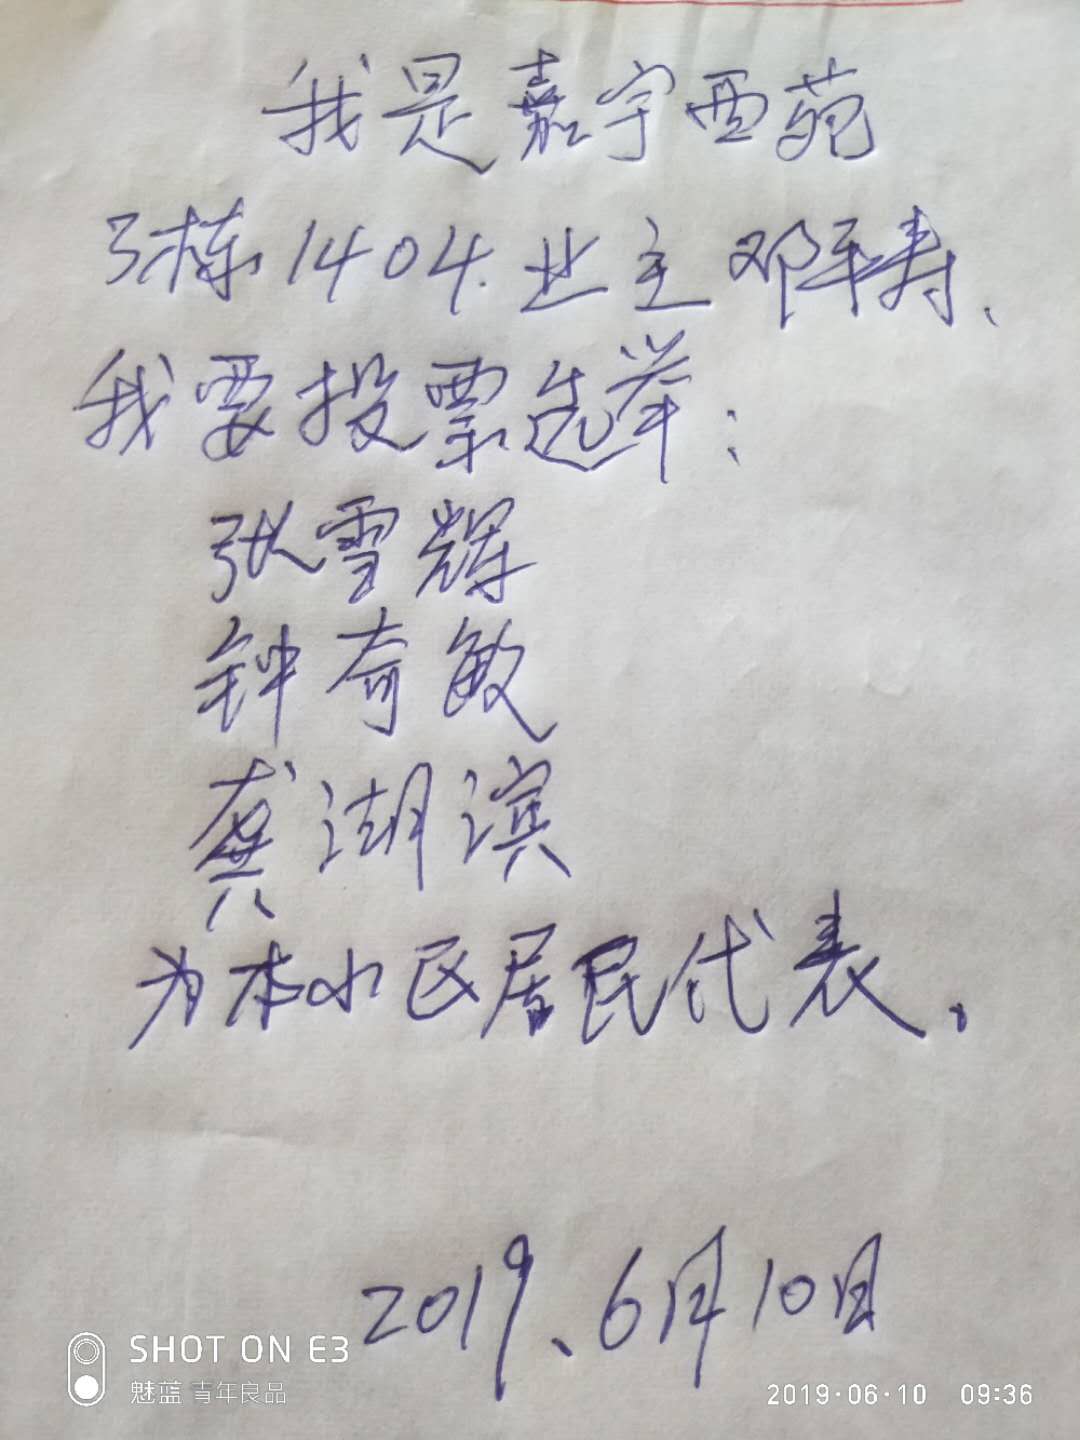 我是嘉宇西苑
3栋1404.业主邓平寿、
我要投票选举:
张雪辉
钟奇敏
龚湖滨
为本小区居民代表、
2019、6月10日
SHOT ON E3
魅蓝 青年良品
2019·06·10 09:36